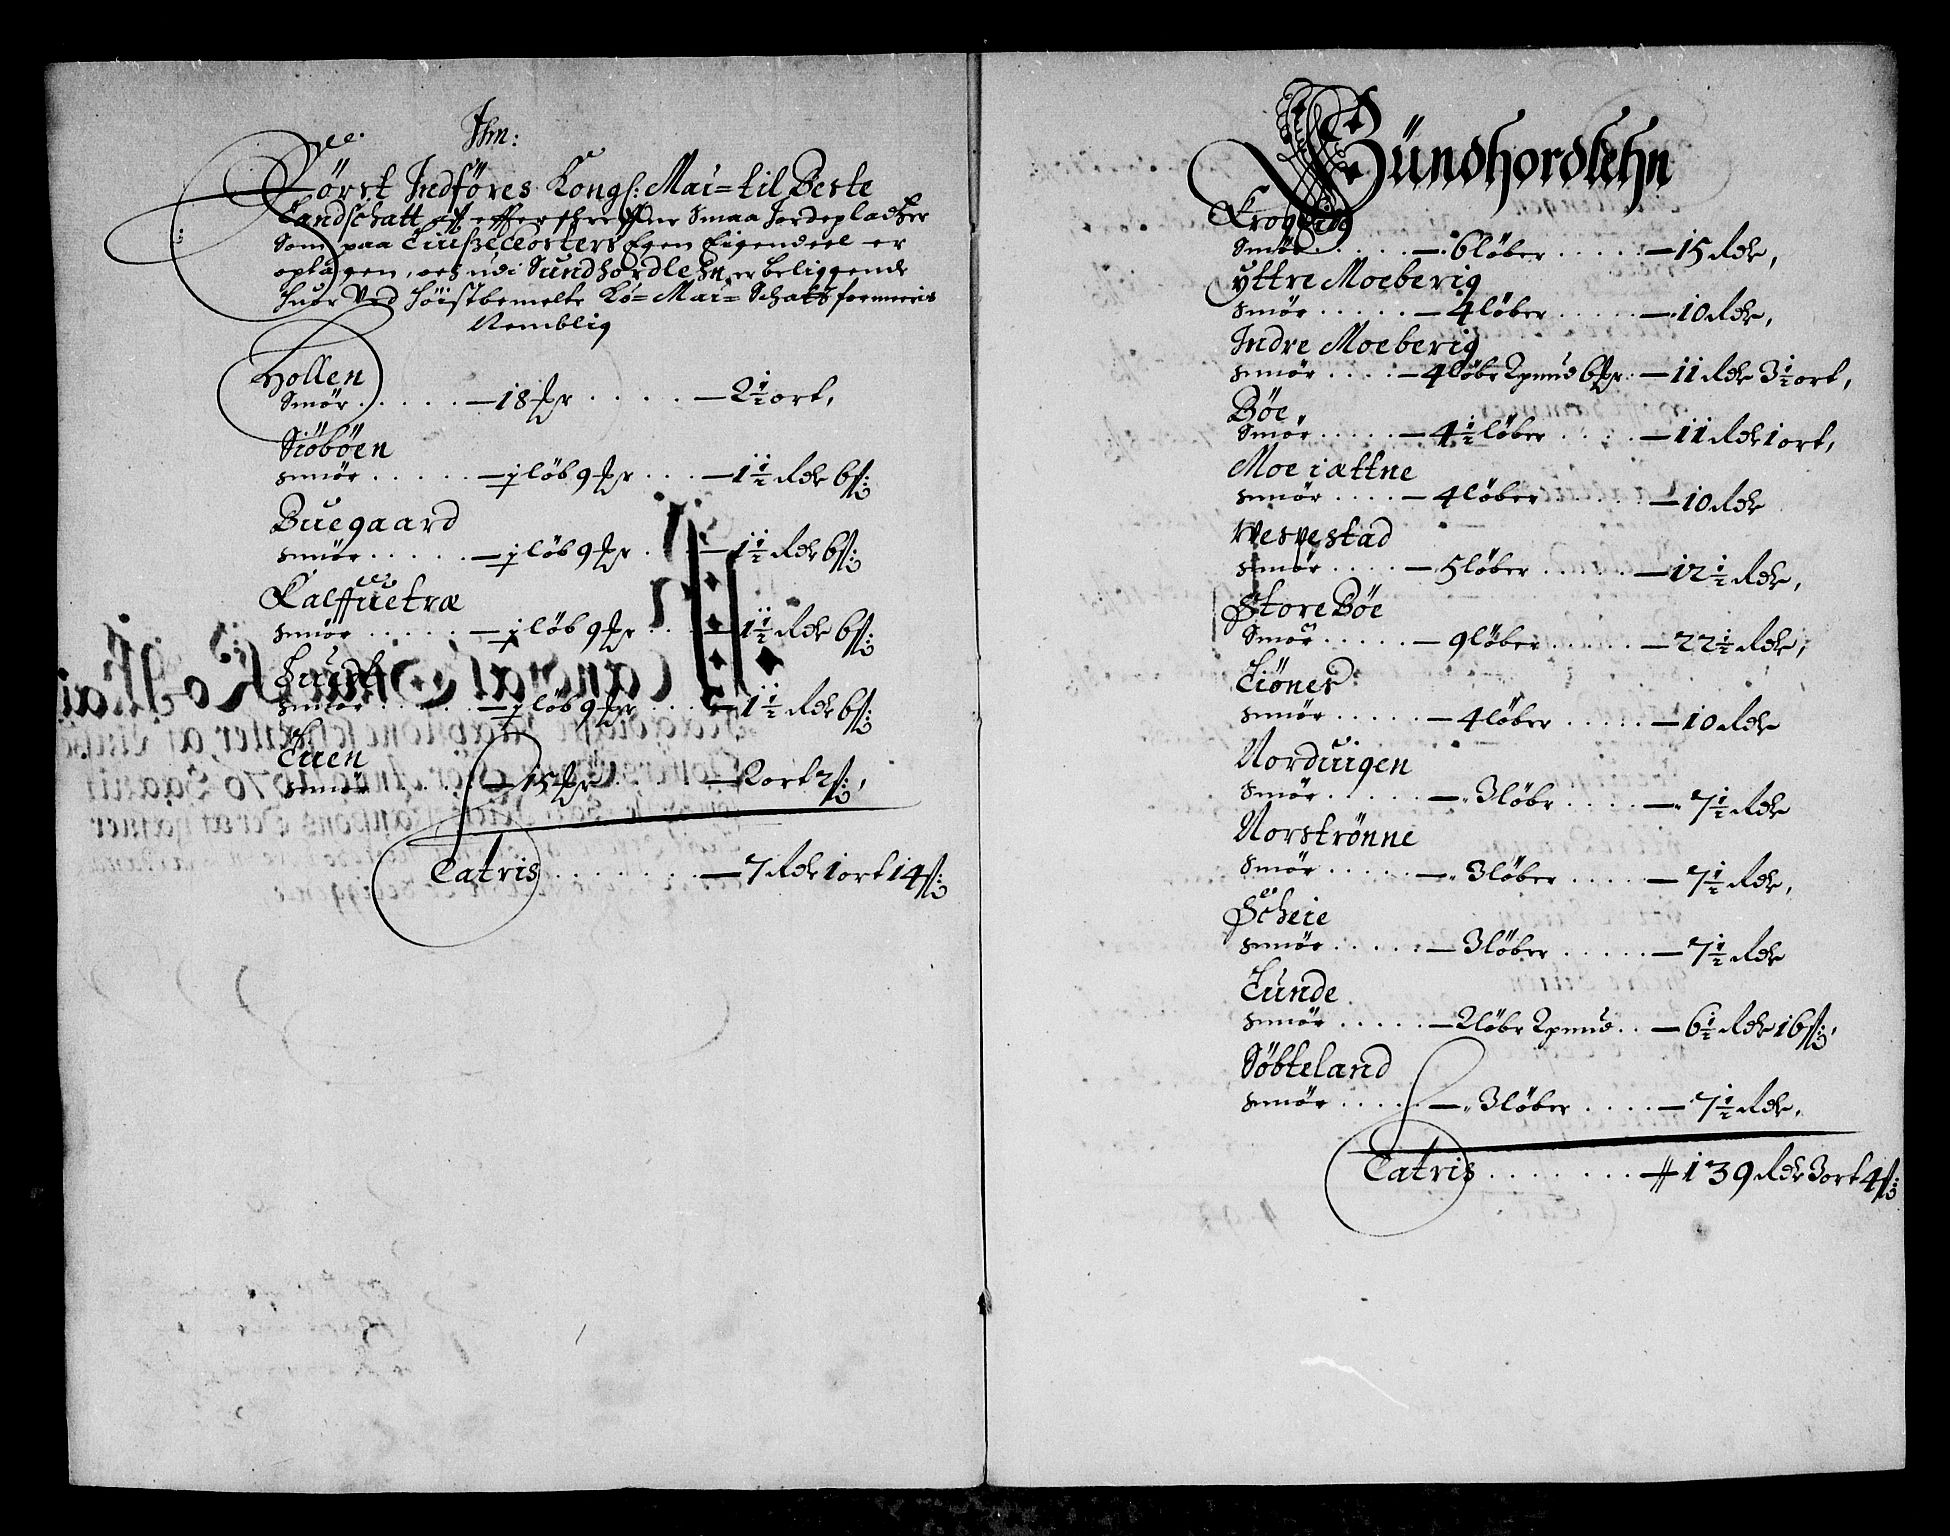 Ihm:
Först Indföres Kongl: Mai= til Beste
Landschatt aff effterschreffne Smaa Jordepladtzer
Som paa Liußeclosters Egen Eigendeel er
optagen, och udi Sundhordlehn er beliggende
huor Ved höistbemelte Ko= Mai= Schatt formeris
Nemblig
Hollen
Smör . . . . . — 18 ſpr . . . . . — 2½ ort,
Siöböen
Smör . . . . . — j löb 9 ſpr . . . — 1½ Rdr 6 ſſ:
Buegaard
Smör . . . . . — j löb 9 ſpr . . . — 1½ Rdr 6 ſſ:
Kalffuetræ
Smör . . . . . — j löb 9 ſpr . . . — 1½ Rdr 6 ſſ:
Smör . . . . . — j löb 9 ſpr . . . — 1½ Rdr 6 ſſ:
Luen
Smör . . . . . — 15 ſpr . . . . . — 2 ort 2 ſſ:,
Latris . . . . . . . — 7 Rdr 1 ort 14 ſſ:
Sündhordlehn
Krogberig
Smör . . . . . — 6 löber . . . . . — 15 Rdr,
yttre Moeberig
Smör . . . . . — 4 löber . . . . . — 10 Rdr,
Indre Moeberig
Smör . . . . — 4 löbr 2 pund 6 ſpr. — 11 Rdr 3½ ort,
Böe
Smör . . . . . — 4½ löber . . . . — 11 Rdr 1 ort,
Moe iættne
Smör . . . . — 4 löber . . . . . — 10 Rdr
Wespestad
Smör . . . . — 5 löber . . . . . — 12½ Rdr,
Store Böe
Smör . . . . . — 9 löber . . . . . — 22½ Rdr,
Liönes
Smör . . . . . — 4 löber . . . . . — 10 Rdr
Norduigen
Smör . . . . . — 3 löbr . . . . — 7½ Rdr
Norströnne
Smör . . . . . — 3 löber . . . . . — 7½ Rdr,
Scheie
Smör . . . . . — 3 löber . . . . . — 7½ Rdr
Lunde
Smör . . . . . — 2 löbr 2 pund . . — 6½ Rdr 16 ſſ:,
Söbteland
Smör . . . . . — 3 löber . . . . — 7½ Rdr,
Latris . . . . . . . — 139 Rdr 3 ort 4 ſſ: